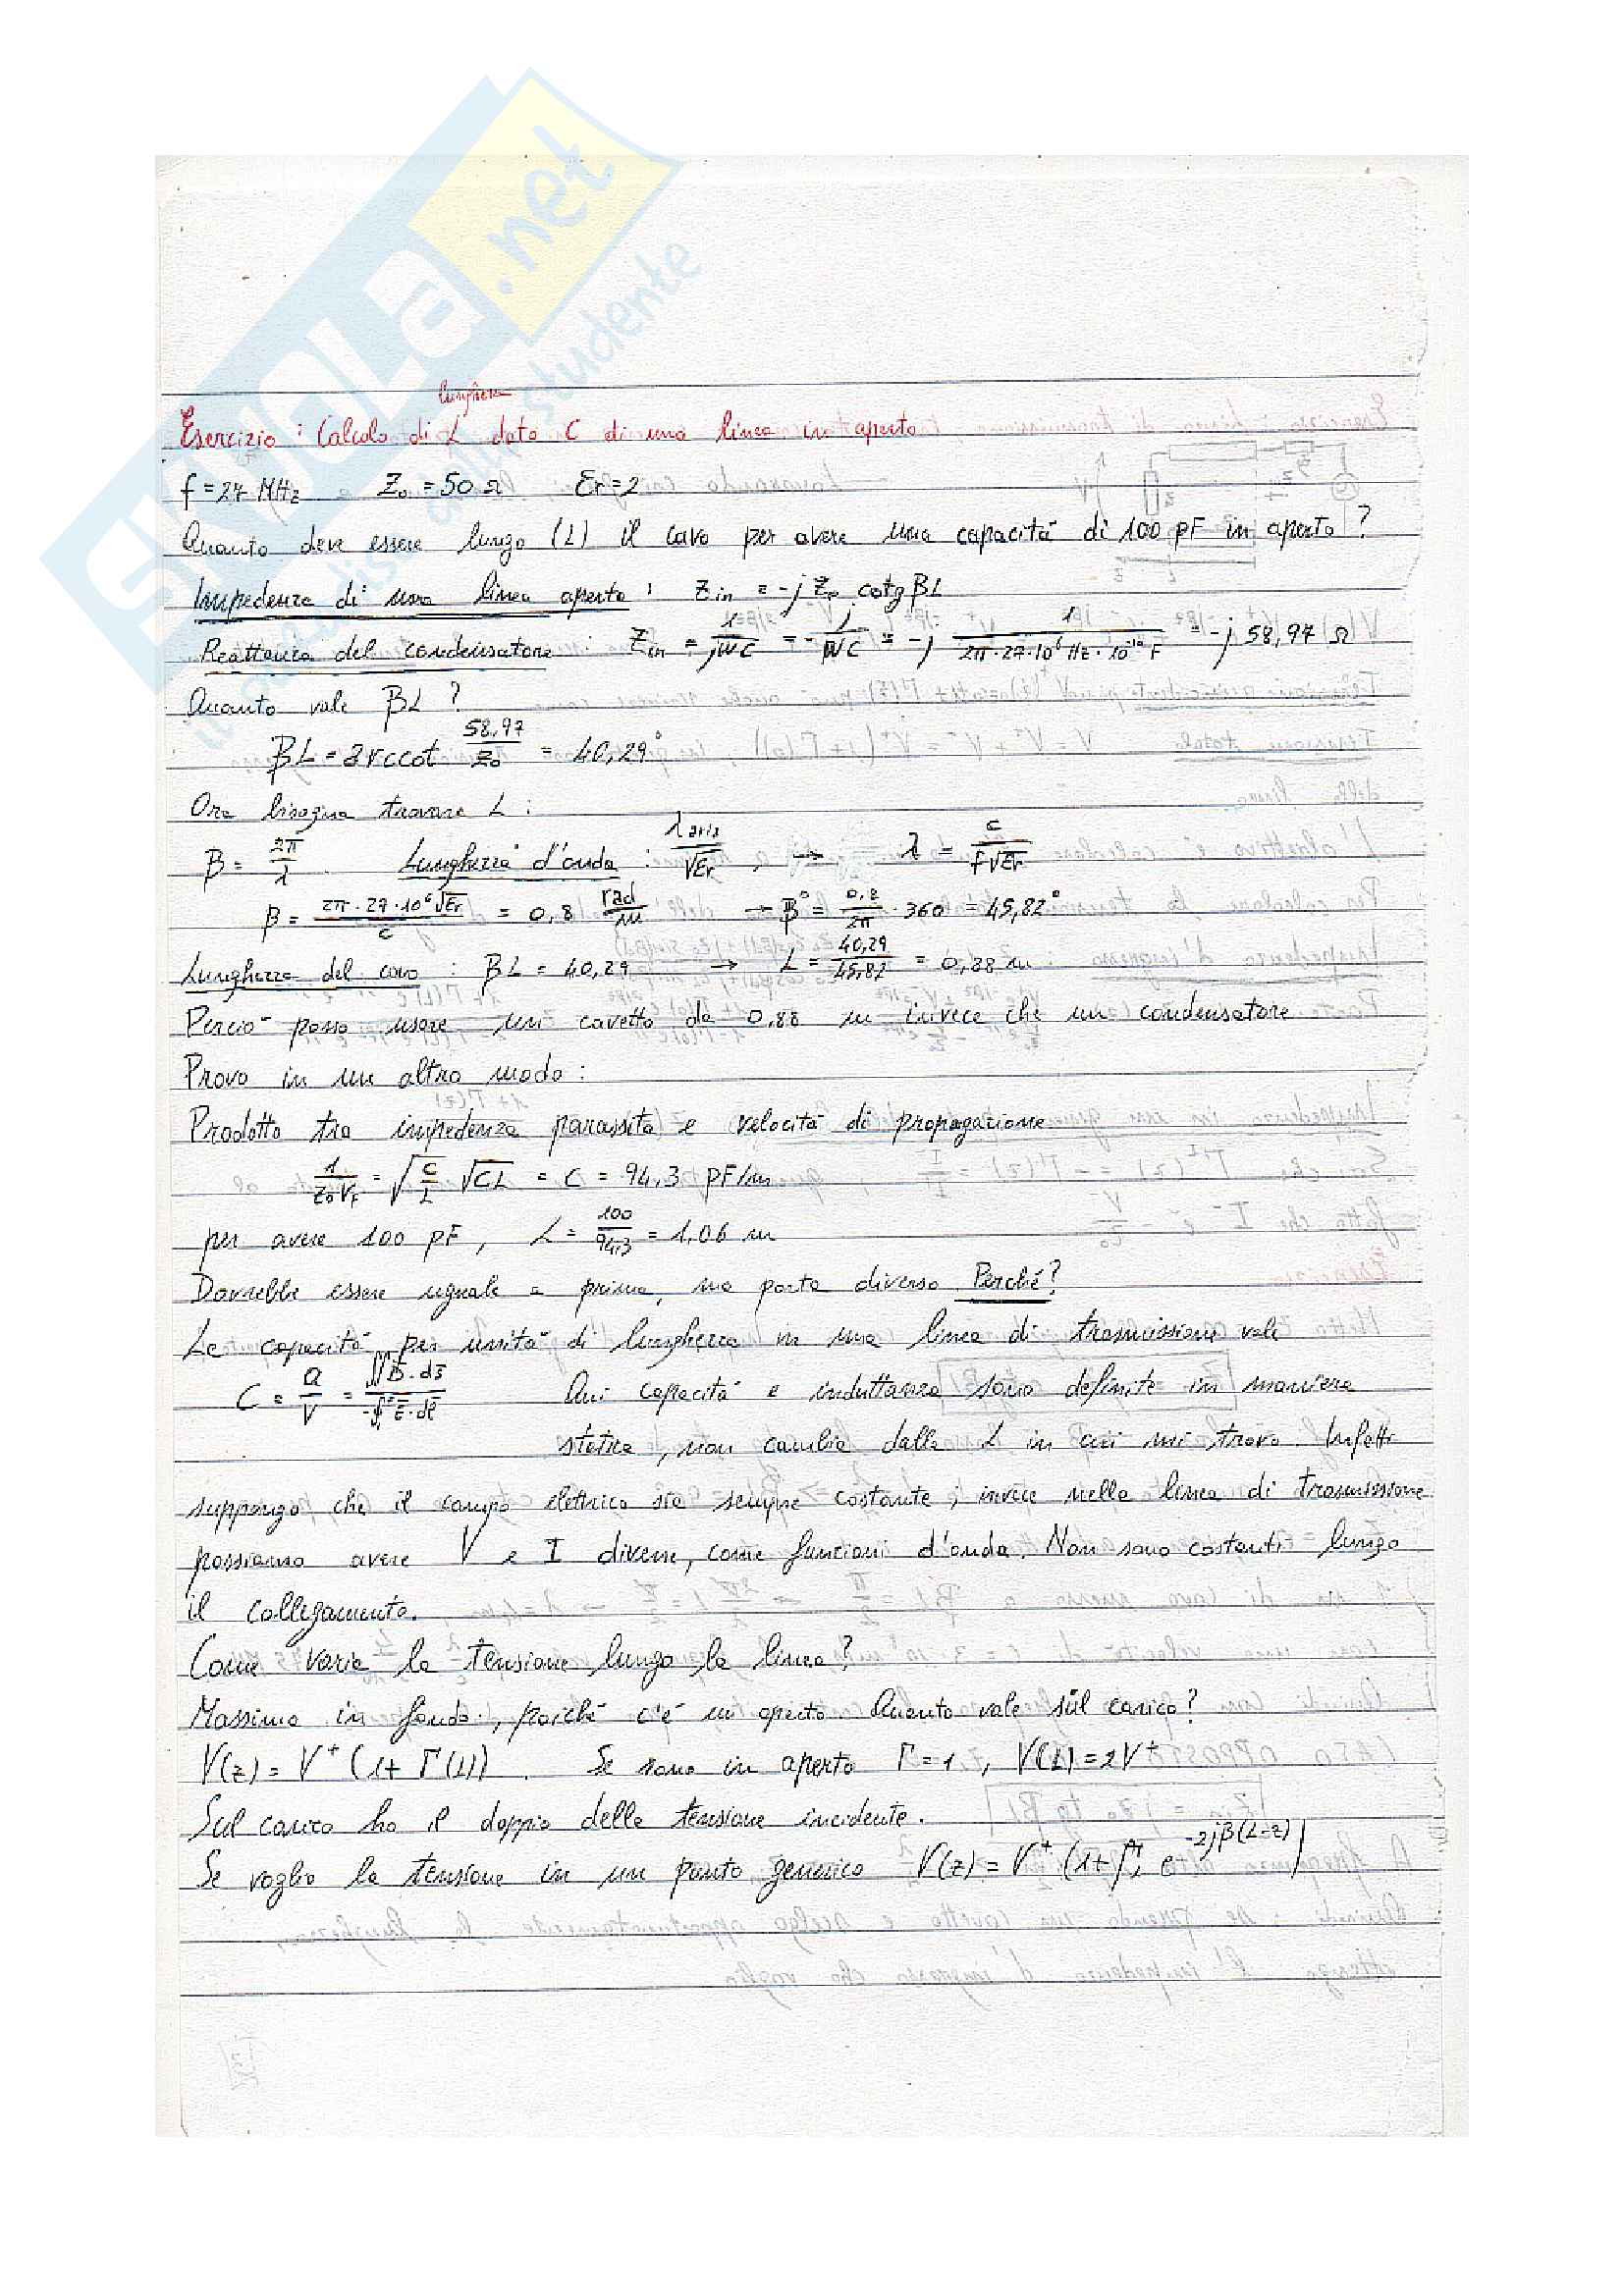 SKUOLa.net
il paradiso dello studente
lunghezza
Esercizio : Calcolo di L dato C di una linea in aperto
f = 27 MHz Z₀ = 50 Ω Er = 2
Quanto deve essere lungo (L) il cavo per avere una capacità di 100 pF in aperto ?
Impedenza di una linea aperta : Zin = -j Z₀ cotg βL
Reattanza del condensatore : Zin = 1/jWC = - j/WC = -j 1/(2π·27·10⁶ Hz·10⁻¹⁰ F) = -j 58,97 Ω
Quanto vale βL ?
βL = arccot 58,97/Z₀ = 40,29°
Ora bisogna trovare L :
β = 2π/λ . Lunghezza d'onda : λaria/√Er , → λ = c/(f√Er)
β = 2π·27·10⁶√Er/c = 0,8 rad/m → β° = 0,8/2π · 360 = 45,82°
Lunghezza del cavo : βL = 40,29 → L = 40,29/45,82 = 0,88 m
Perciò posso usare un cavetto da 0,88 m invece che un condensatore
Provo in un altro modo :
Prodotto tra impedenza parassita e velocità di propagazione
1/(Z₀ VF) = √(C/L) √CL = C = 94,3 pF/m
per avere 100 pF, L = 100/94,3 = 1,06 m
Dovrebbe essere uguale a prima, ma porta diverso. Perché?
La capacità per unità di lunghezza in una linea di trasmissione vale
C = Q/V = ∬D·ds/-∫E·dl Qui capacità e induttanza sono definite in maniera
statica, non cambia dalla L in cui mi trovo. Infatti
suppongo che il campo elettrico sia sempre costante, invece nella linea di trasmissione
possiamo avere V e I diverse, come funzioni d'onda. Non sono costanti lungo
il collegamento.
Come varia la tensione lungo la linea?
Massima in fondo, poiché c'è un aperto Quanto vale sul carico?
V(z) = V⁺ (1 + Γ(L)) . Se sono in aperto Γ = 1, V(L) = 2V⁺
Sul carico ho il doppio della tensione incidente.
Se voglio la tensione in un punto generico V(z) = V⁺ (1 + Γ e^-2jβ(L-z))